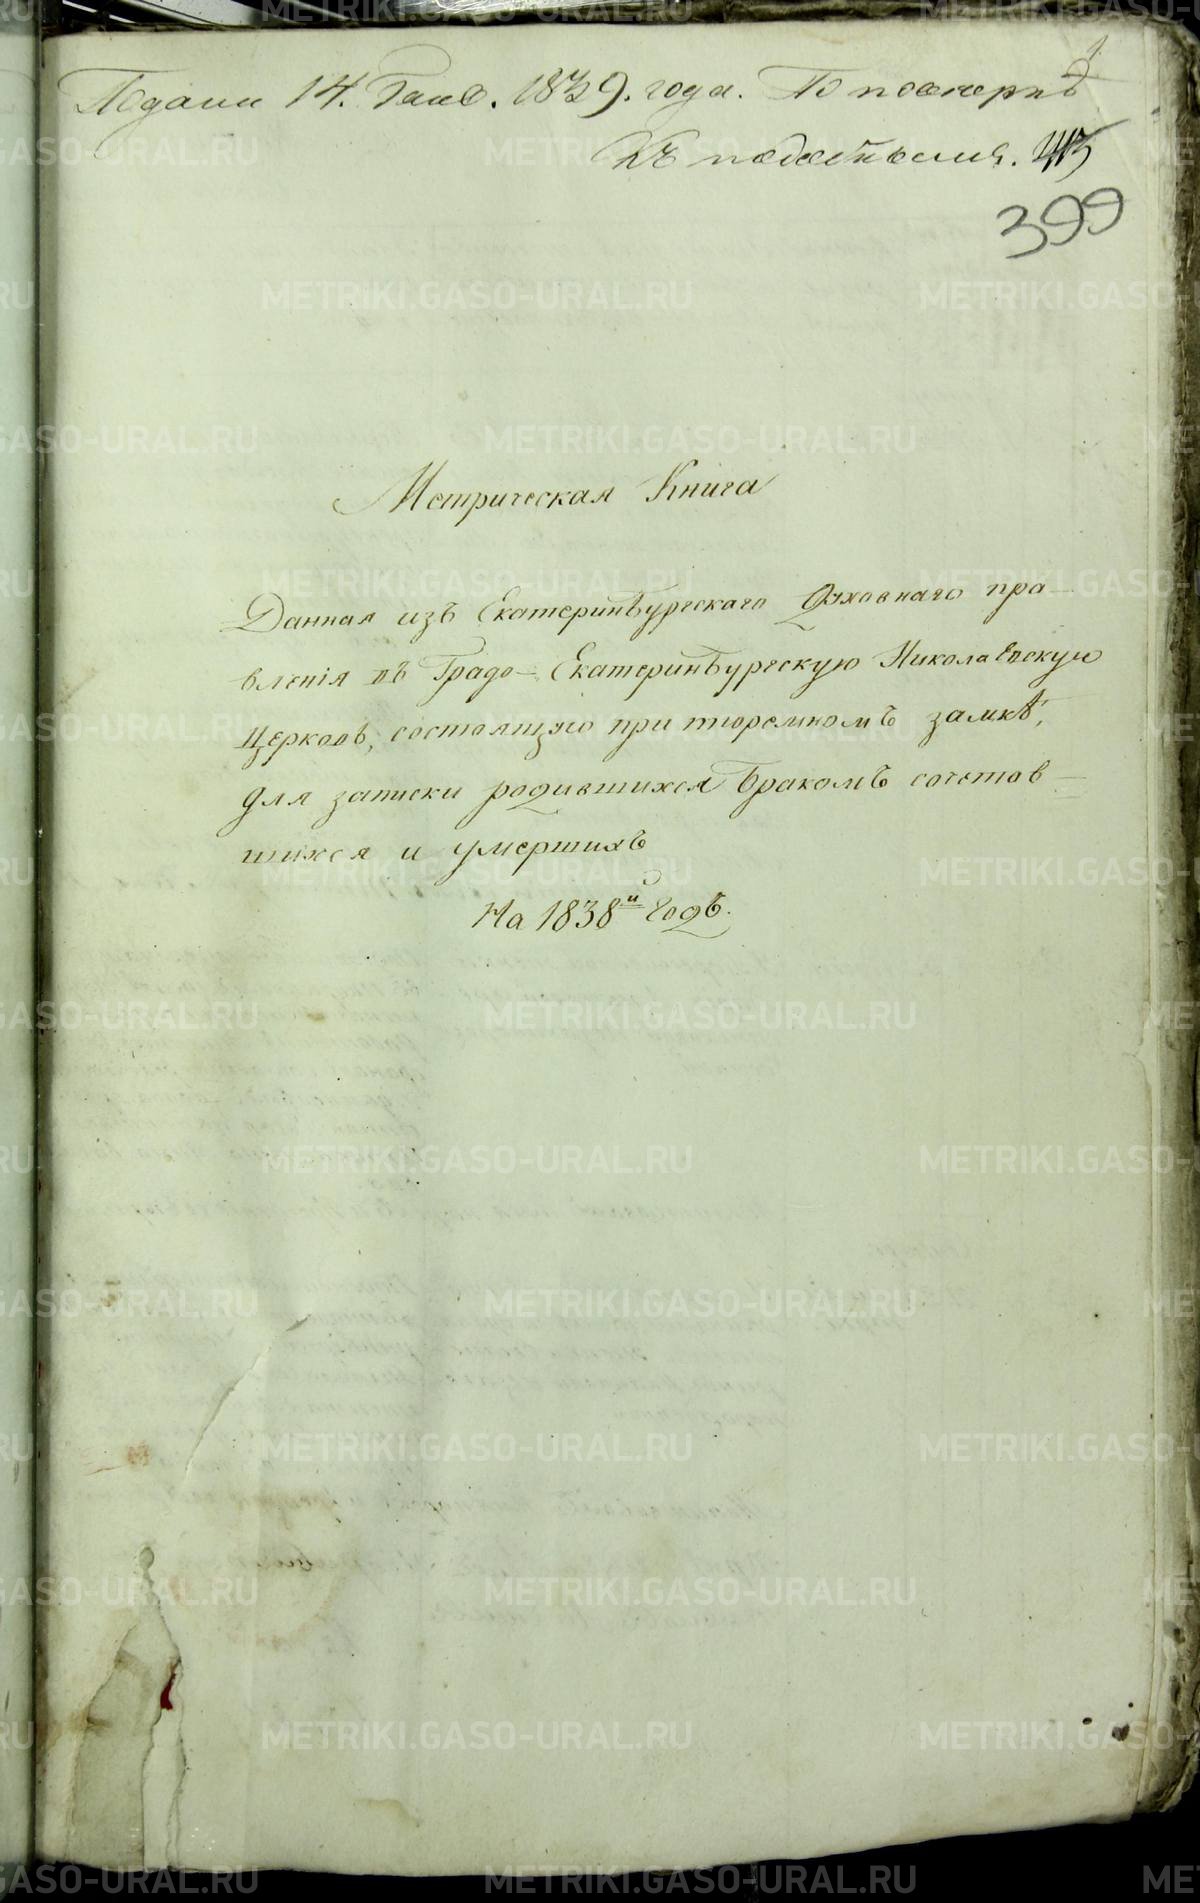 Подана 14. Генв. 1839. года. По повѣркѣ
къ
399
Метрическая Книга
Данная изъ Екатеринбургскаго Духовнаго пра-
вленія въ Градо-Екатеринбургскую Николаевскую
Церковь, состоящую при тюремномъ замкѣ,
для записки родившихся бракомъ сочетав-
шихся и умершихъ
На 1838й Годъ.
METRIKI.GASO-URAL.RU